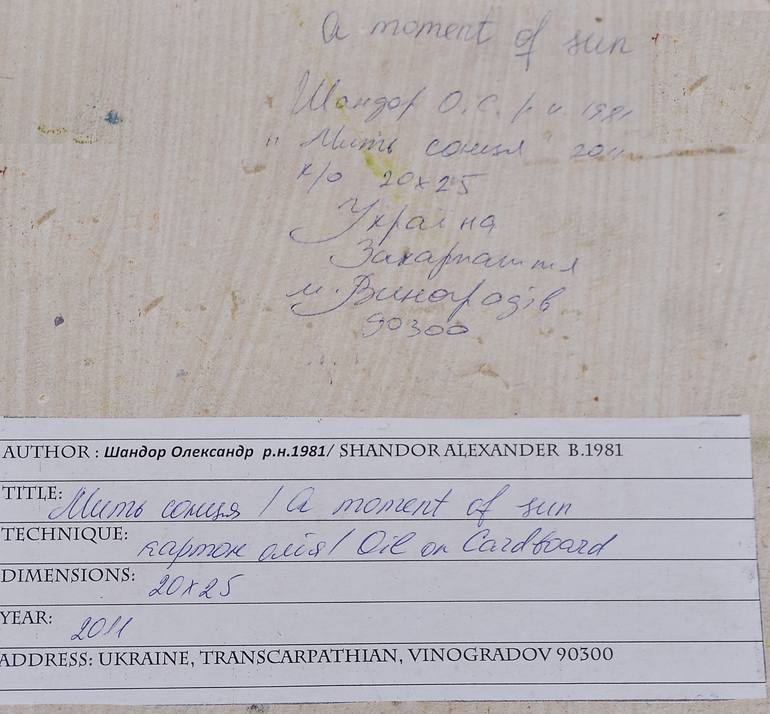 A moment of sun
Шандор О.С. р.н. 1981
"Мить сонця 2011
к/о 20х25
Україна
Закарпаття
м. Виноградів
90300
AUTHOR : Шандор Олександр р.н.1981/ SHANDOR ALEXANDER B.1981
TITLE: Мить сонця / A moment of sun
TECHNIQUE: картон олія/ Oil on Cardboard
DIMENSIONS: 20x25
YEAR: 2011
ADDRESS: UKRAINE, TRANSCARPATHIAN, VINOGRADOV 90300